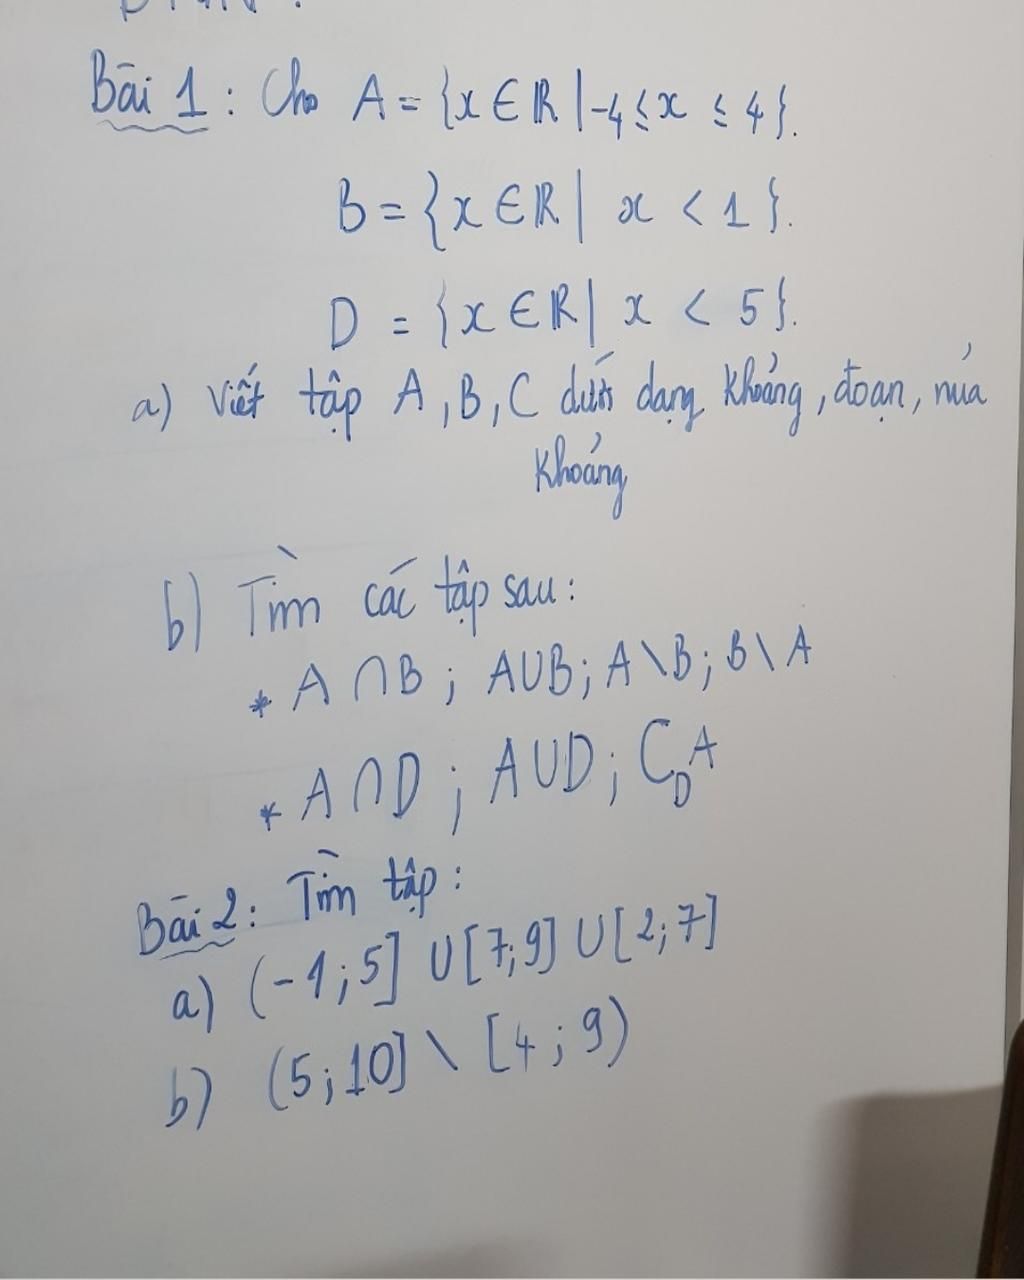 Bài 1: Cho A = {x ∈ ℝ | -4 ≤ x ≤ 4}.
B = {x ∈ ℝ | x < 1}.
D = {x ∈ ℝ | x < 5}.
a) Viết tập A, B, C dưới dạng khoảng, đoạn, nửa
khoảng
b) Tìm các tập sau:
* A ∩ B ; A ∪ B ; A \ B ; B \ A
* A ∩ D ; A ∪ D ; C_D A
Bài 2: Tìm tập:
a) (-1; 5] ∪ [7; 9] ∪ [2; 7]
b) (5; 10] \ [4; 9)